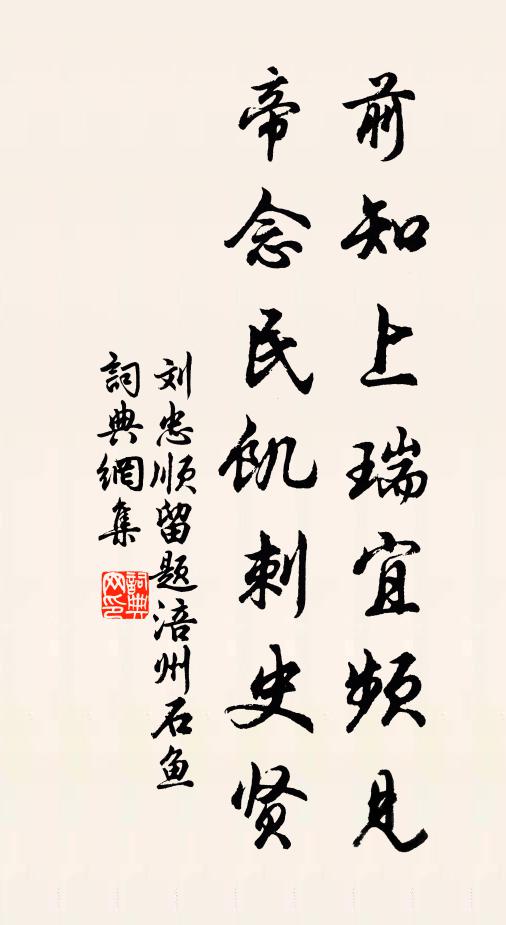 前知上瑞宜频见
帝念民飢刺史贤
刘忠顺留题涪州石鱼
詞典網集
詞典网印